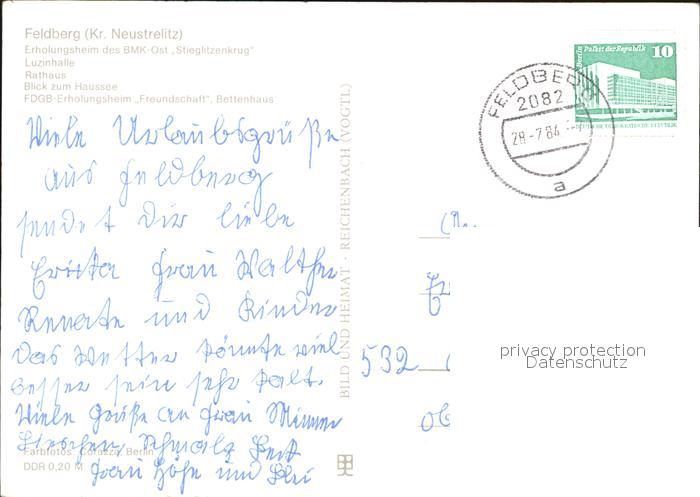 Feldberg (Kr. Neustrelitz)
Erholungsheim des BMK-Ost „Stieglitzenkrug"
Luzinhalle
Rathaus
Blick zum Haussee
FDGB-Erholungsheim „Freundschaft", Bettenhaus
Viele Urlaubsgrüße
aus Feldberg
sendet Dir liebe
Erika Frau Walther
Renate und Kinder
Das Wetter könnte viel
besser sein sehr kalt.
Viele Grüße an Frau
Frau Höhne und
Farbfotos: Corazza, Berlin
DDR 0,20 M
BILD UND HEIMAT · REICHENBACH (VOGTL)
Berlin Palast der Republik 10
DEUTSCHE DEMOKRATISCHE REPUBLIK
FELDBERG
2082
28-7.84
a
532
privacy protection
Datenschutz